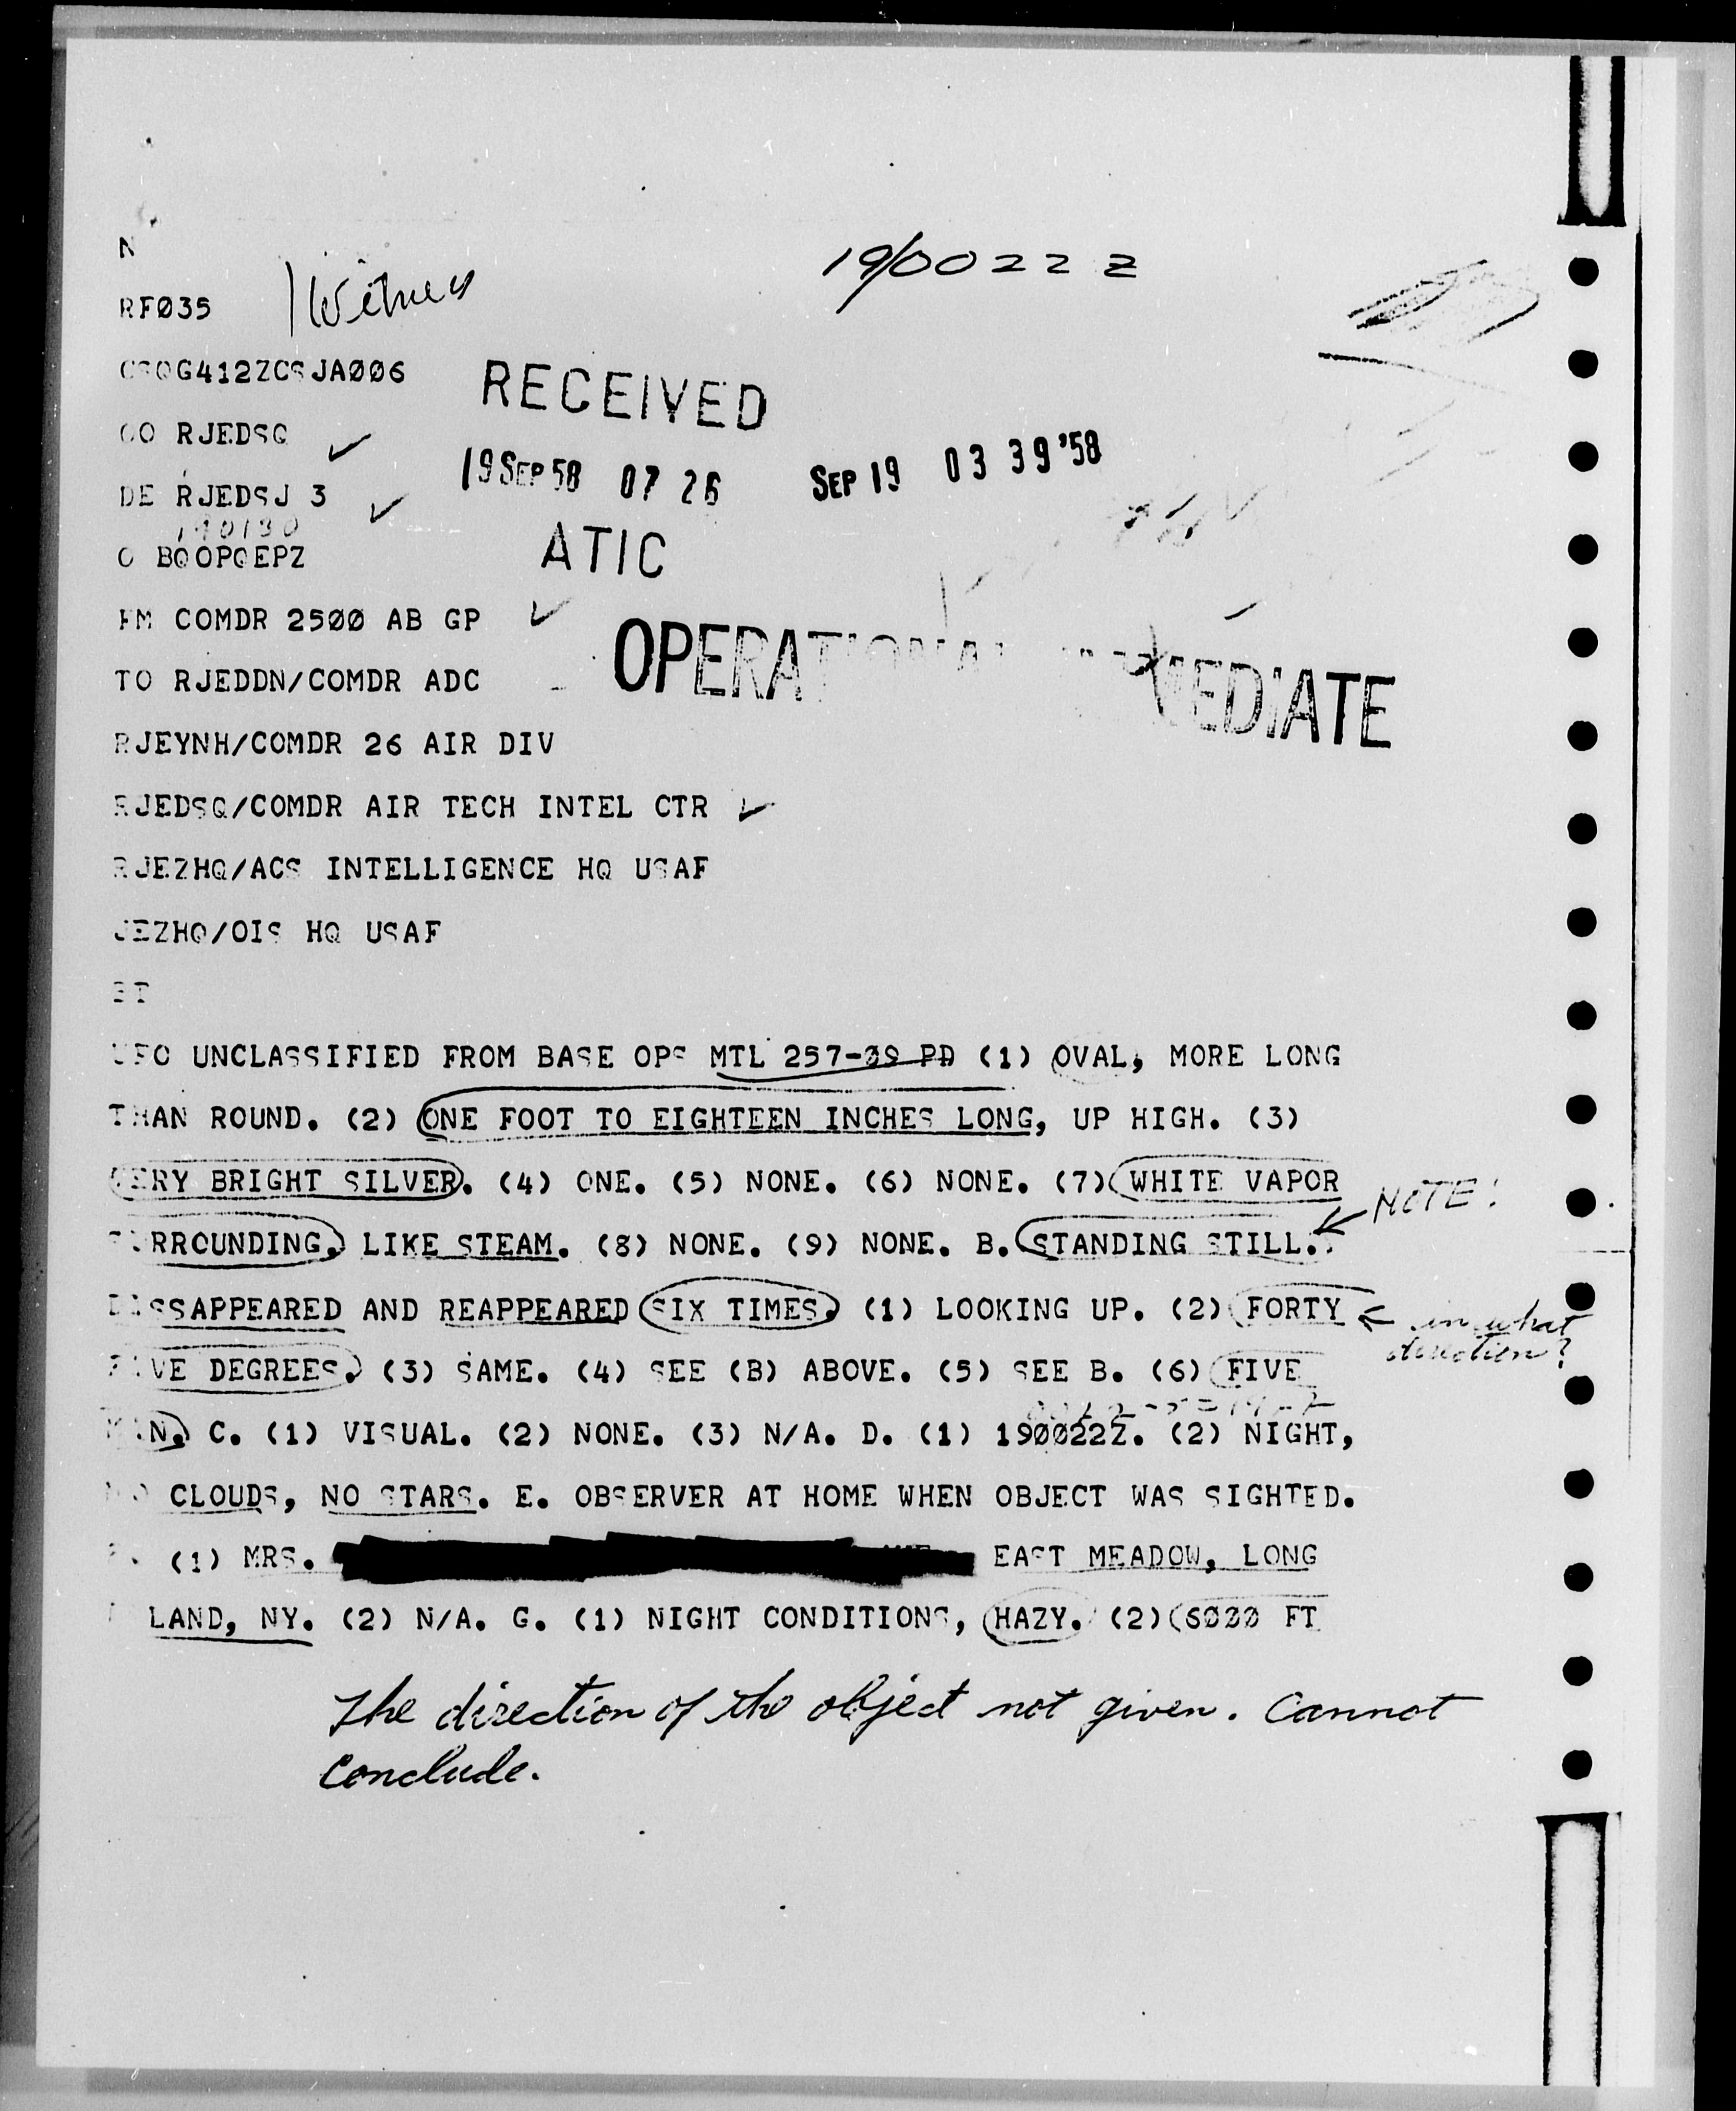 N
RFØ35
1 Witness
19/0022 Z
CSQG412ZCSJAØØ6
RECEIVED
OO RJEDSQ
19 SEP 58 07 26
SEP 19 03 39 '58
DE RJEDSJ 3
190130
O BQOPQEPZ
ATIC
FM COMDR 25ØØ AB GP
OPERATIONAL IMMEDIATE
TO RJEDDN/COMDR ADC
RJEYNH/COMDR 26 AIR DIV
RJEDSQ/COMDR AIR TECH INTEL CTR
RJEZHQ/ACS INTELLIGENCE HQ USAF
JEZHQ/OIS HQ USAF
BT
UFO UNCLASSIFIED FROM BASE OPS MTL 257-Ø9 PD (1) OVAL, MORE LONG
THAN ROUND. (2) ONE FOOT TO EIGHTEEN INCHES LONG, UP HIGH. (3)
VERY BRIGHT SILVER. (4) ONE. (5) NONE. (6) NONE. (7) WHITE VAPOR
NOTE!
SURROUNDING, LIKE STEAM. (8) NONE. (9) NONE. B. STANDING STILL.
DISSAPPEARED AND REAPPEARED SIX TIMES. (1) LOOKING UP. (2) FORTY
in what
direction?
FIVE DEGREES. (3) SAME. (4) SEE (B) ABOVE. (5) SEE B. (6) FIVE
MIN. C. (1) VISUAL. (2) NONE. (3) N/A. D. (1) 19ØØ22Z. (2) NIGHT,
NO CLOUDS, NO STARS. E. OBSERVER AT HOME WHEN OBJECT WAS SIGHTED.
F. (1) MRS. EAST MEADOW, LONG
LAND, NY. (2) N/A. G. (1) NIGHT CONDITIONS, HAZY. (2) 6ØØØ FT
The direction of the object not given. Cannot
conclude.